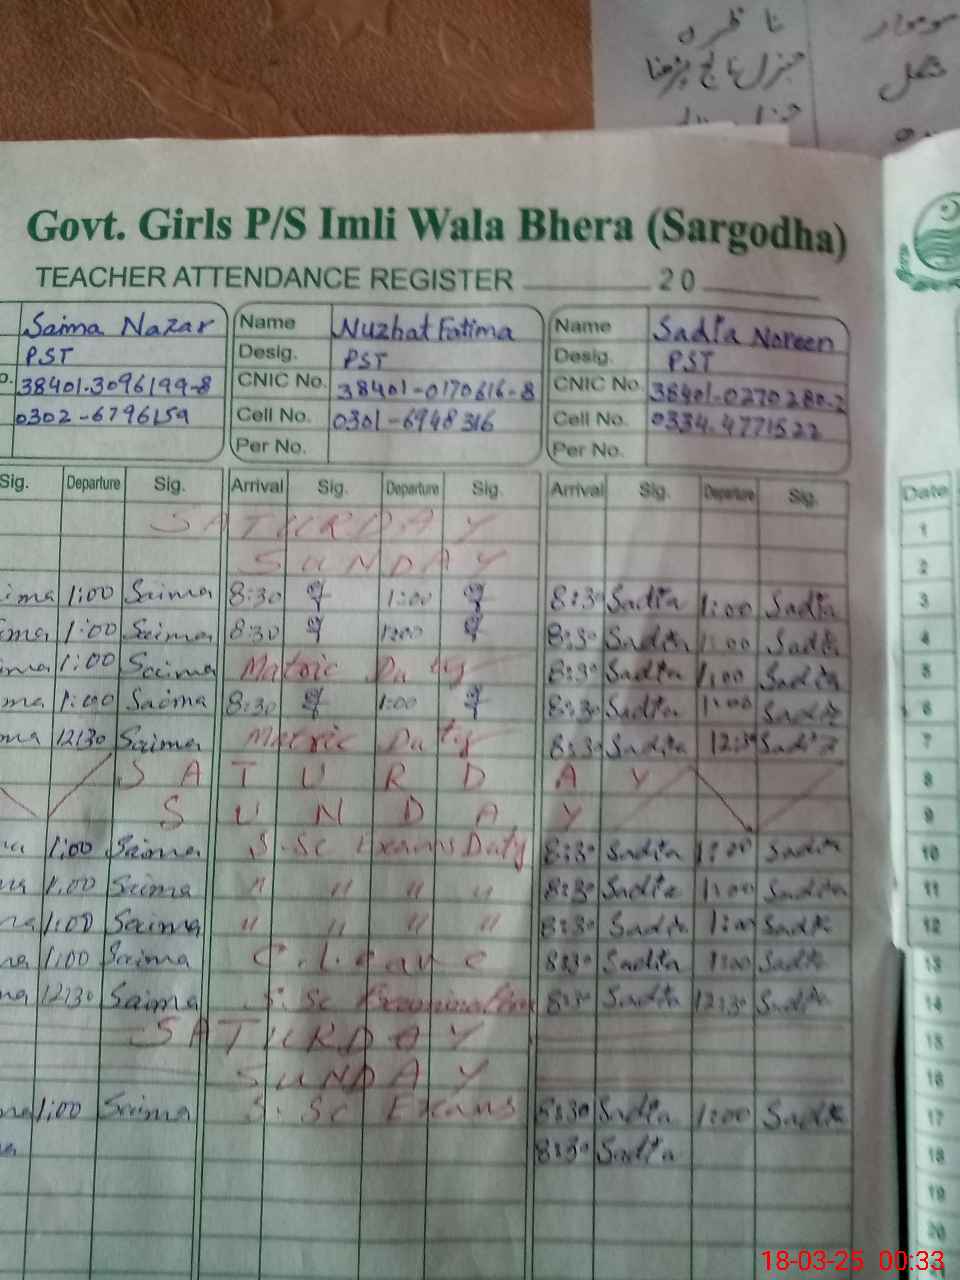 نا ظره
موموار
Govt. Girls P/S Imli Wala Bhera (Sargodha)
TEACHER ATTENDANCE REGISTER 20
Saima Nazar Name Nuzhat Fatima Name Sadia Noreen
PST Desig. PST Desig. PST
38401-3096199-8 CNIC No. 38401-0170616-8 CNIC No. 38401-0270280-2
0302-6796159 Cell No. 0301-6948316 Cell No. 0334-4771522
Per No. Per No.
Sig. Departure Sig. Arrival Sig. Departure Sig. Arrival Sig. Departure Sig. Date
SATURDAY 1
SUNDAY 2
ima 1:00 Saima 8:30 1:00 8:30 Sadia 1:00 Sadia 3
ima 1:00 Saima 8:30 1:00 8:30 Sadia 1:00 Sadia 4
ima 1:00 Saima Matric Duty 8:30 Sadia 1:00 Sadia 5
ma 1:00 Saima 8:30 1:00 8:30 Sadia 1:00 Sadia 6
ma 12:30 Saima Matric Duty 8:30 Sadia 12:30 Sadia 7
SATURDAY 8
SUNDAY 9
ma 1:00 Saima S.Sc Exams Duty 8:30 Sadia 1:00 Sadia 10
ma 1:00 Saima " " " " 8:30 Sadia 1:00 Sadia 11
ma 1:00 Saima " " " " 8:30 Sadia 1:00 Sadia 12
ma 1:00 Saima C.leave 8:30 Sadia 1:00 Sadia 13
ma 12:30 Saima S.Sc Examination 8:30 Sadia 12:30 Sadia 14
SATURDAY 15
SUNDAY 16
ma 1:00 Saima S.Sc Exams 8:30 Sadia 1:00 Sadia 17
8:30 Sadia 18
19
20
18-03-25 00:33